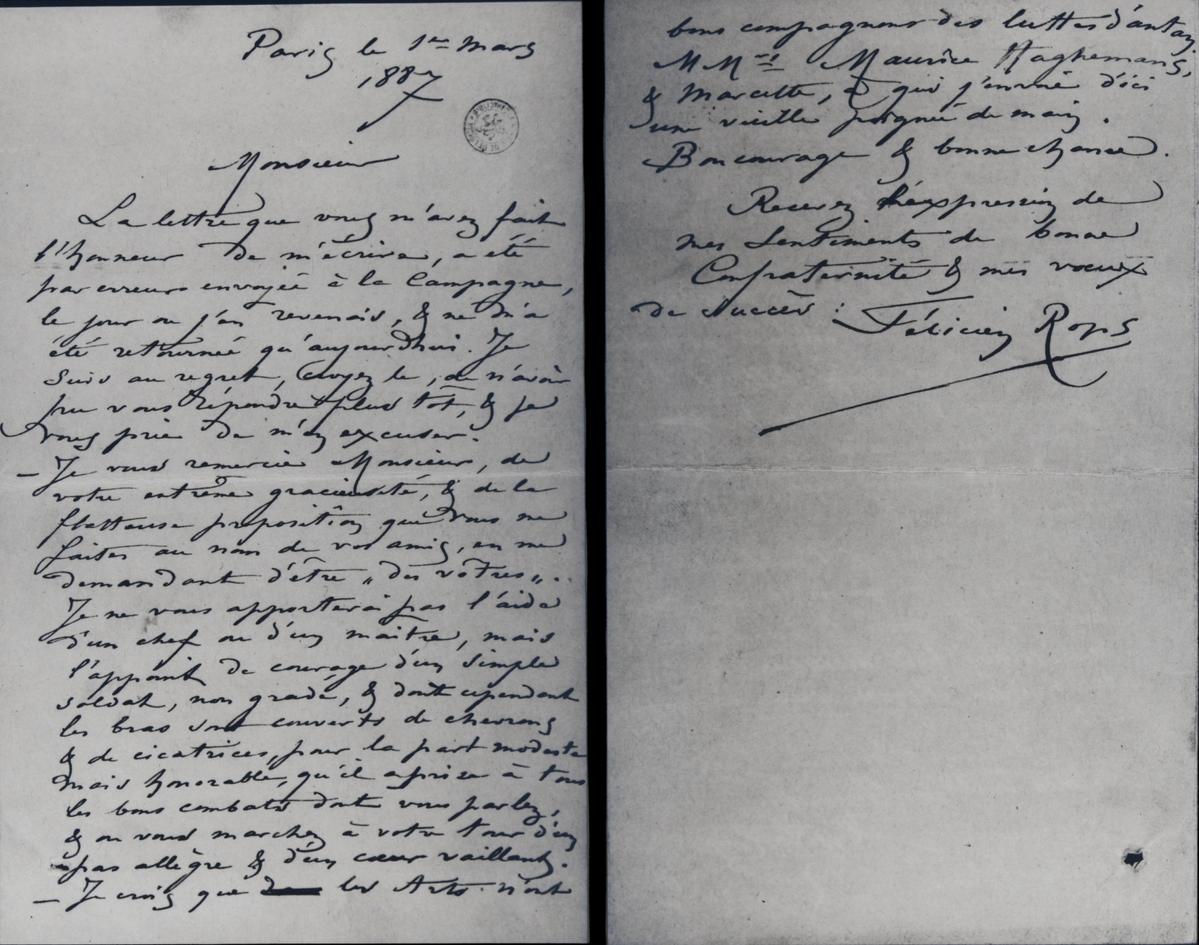 Paris le 1er Mars
1887
Monsieur
La lettre que vous m'avez fait
l'honneur de m'écrire, a été
par erreurs envoyée à la Campagne,
le jour ou j'en revenais, & ne m'a
été retournée qu'aujourd'hui. Je
suis au regret, croyez le, de n'avoir
pu vous répondre plus tôt, & je
vous prie de m'en excuser.
– Je vous remercie Monsieur, de
votre extrême gracieuseté, & de la
flatteuse proposition que vous me
faites au nom de vos amis, en me
demandant d'être „des vôtres„.
Je ne vous apporterai pas l'aide
d'un chef ou d'un maitre, mais
l'appoint de courage d'un simple
soldat, non gradé, & dont cependant
les bras sont couverts de chevrons
& de cicatrices, pour la part modeste
mais honorable, qu'il a prise à tous
les bons combats dont vous parlez,
& ou vous marchez à votre tour d'un
pas allègre & d'un cœur vaillant.
– Je crois que les Arts n'ont
bons compagnons des luttes d'antan,
MMrs Maurice Hagemans,
& Marcette, à qui j'envoie d'ici
une vieille poignée de main.
Bon courage & bonne chance.
Recevez l'expression de
mes sentiments de bonne
Confraternité & mes vœux
de succès :
Félicien Rops